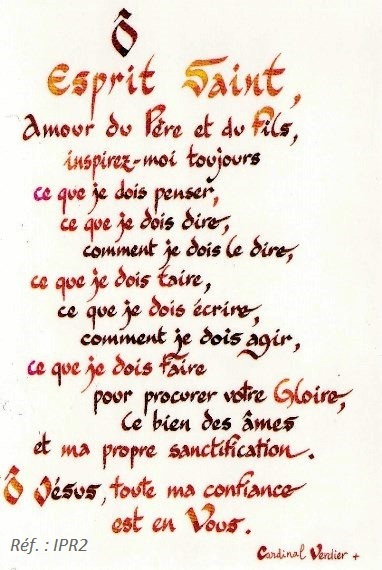 Ô
Esprit Saint,
Amour du Père et du Fils,
inspirez-moi toujours
ce que je dois penser,
ce que je dois dire,
comment je dois le dire,
ce que je dois taire,
ce que je dois écrire,
comment je dois agir,
ce que je dois faire
pour procurer votre Gloire,
le bien des âmes
et ma propre sanctification.
Ô Jésus, toute ma confiance
est en Vous.
Réf. : IPR2
Cardinal Verdier +